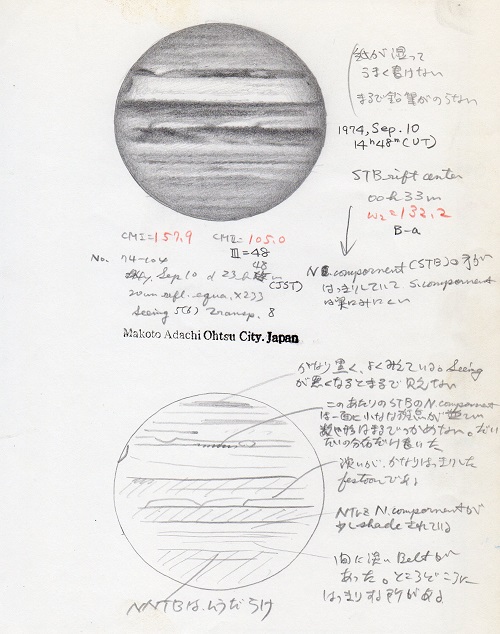 紙が湿って
うまく書けない
まるで鉛筆がのらない
1974, Sep. 10
14h48m(UT)
STB rift center
00h33m
ω2=132.2
B-a
CMI=157.9 CMII=105.0
III=48
No. 74-104
Sep 10 d 23h 48m
(JST)
20cm refl. equa. ×233
Seeing 5(6) Transp. 8
Makoto Adachi Ohtsu City. Japan
N. component (STB)の方が
はっきりしていて S. component
は実にみにくい
かなり黒く、よくみえている。Seeing
が悪くなるとまるで見えない
このあたりのSTBのN. component
は一面に小さな斑点が
数や形はまるでつかめない。だい
たいの分布だけ書いた
淡いが、かなりはっきりした
festoonである
NTBとN. componentが
少しshadeされている
に淡いBeltが
あった。ところどころに
はっきりする所がある
NNTBは